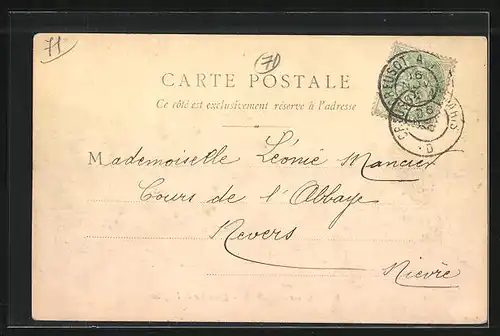 71
71
CARTE POSTALE
Ce côté est exclusivement réservé à l'adresse
CREUSOT A PARIS
Mademoiselle Léonie Mancier
Cours de l'Abbaye
Nevers
Nièvre